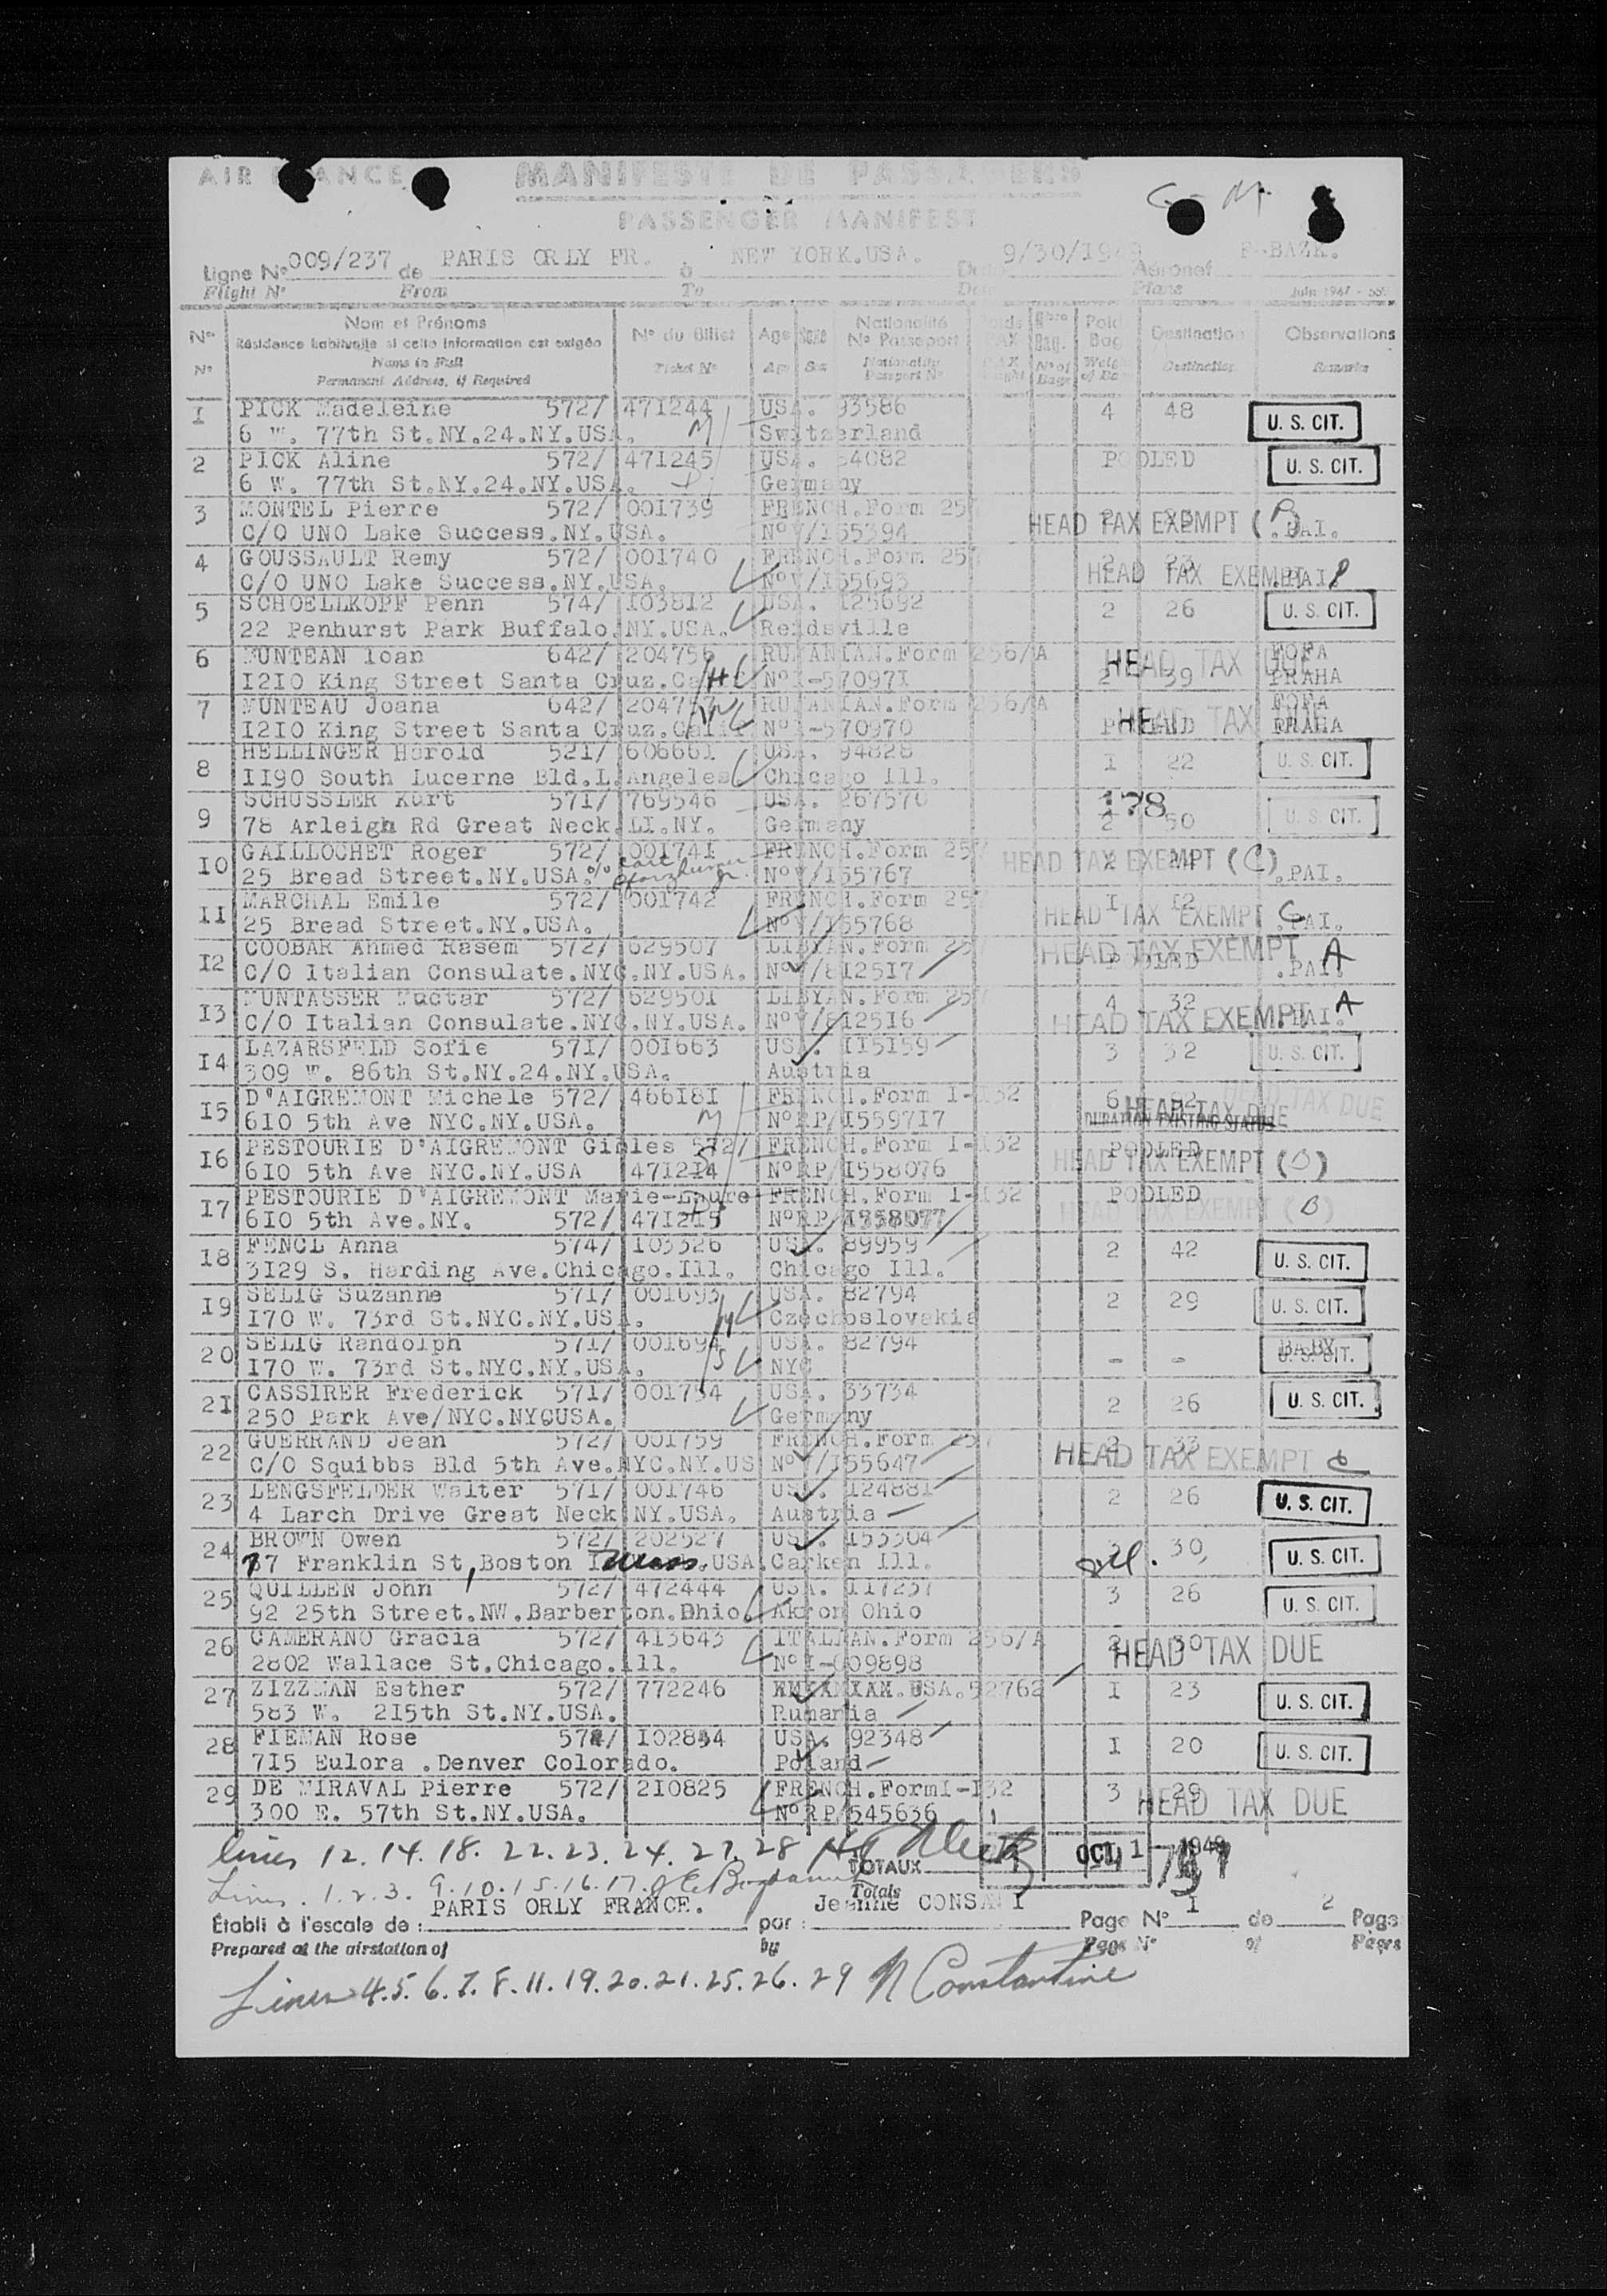 AIR FRANCE MANIFESTE DE PASSAGERS
C-M.
PASSENGER MANIFEST
Ligne No 009/237 de PARIS ORLY FR. à NEW YORK.USA. Date 9/30/1949 Aéronef F-BAZK.
Flight No From To Date Plane Juin 1947
No Nom et Prénoms No du Billet Age Sexe Nationalité Poids Nbre Poids Destination Observations
Résidence habituelle si cette information est exigée No Passeport PAX Bag. Bag
No Name in Full Ticket No Age Sex Nationality No of Weight Destination Remarks
Permanent Address, if Required Passport No Bags of Bag
1 PICK Madeleine 572/ 471244 USA. 93586 4 48 U. S. CIT.
6 W. 77th St.NY.24.NY.USA. M Switzerland
2 PICK Aline 572/ 471245 USA. 54082 POOLED U. S. CIT.
6 W. 77th St.NY.24.NY.USA. Germany
3 MONTEL Pierre 572/ 001739 FRENCH.Form 257 HEAD TAX EXEMPT (B) .PAI.
C/O UNO Lake Success.NY.USA. NoV/155394
4 GOUSSAULT Remy 572/ 001740 FRENCH.Form 257 2 23 HEAD TAX EXEMPT .PAI.
C/O UNO Lake Success.NY.USA. NoV/155693
5 SCHOELLKOPF Penn 574/ 103812 USA. 125692 2 26 U. S. CIT.
22 Penhurst Park Buffalo.NY.USA. Reidsville
6 MUNTEAN Ioan 642/ 204756 RUMANIAN.Form 256/A 2 39 HEAD TAX DUE FOFA
1210 King Street Santa Cruz.Ca H NoI-570971 PRAHA
7 MUNTEAU Joana 642/ RUMANIAN.Form 256/A POOLED HEAD TAX DUE FOFA
1210 King Street Santa Cruz.Calif NoI-570970 PRAHA
8 HELLINGER Harold 521/ 606661 USA. 94828 1 22 U. S. CIT.
1190 South Lucerne Bld.L.Angeles Chicago Ill.
9 SCHUSSLER Kurt 571/ 769546 USA. 267570 178 2 50 U. S. CIT.
78 Arleigh Rd Great Neck.LI.NY. Germany
10 GAILLOCHET Roger 572/ 001741 FRENCH.Form 257 2 24 HEAD TAX EXEMPT (C) .PAI.
25 Bread Street.NY.USA. c/o NoV/155767
11 MARCHAL Emile 572/ 001742 FRENCH.Form 257 1 12 HEAD TAX EXEMPT C .PAI.
25 Bread Street.NY.USA. NoV/155768
12 COOBAR Ahmed Rasem 572/ 629507 LIBYAN.Form 257 POOLED HEAD TAX EXEMPT A .PAI.
C/O Italian Consulate.NYC.NY.USA. NoV/812517
13 MUNTASSER Muctar 572/ 629501 LIBYAN.Form 257 4 32 HEAD TAX EXEMPT .PAI. A
C/O Italian Consulate.NYC.NY.USA. NoV/812516
14 LAZARSFELD Sofie 571/ 001663 USA. 115159 3 32 U. S. CIT.
309 W. 86th St.NY.24.NY.USA. Austria
15 D'AIGREMONT Michele 572/ 466181 FRENCH.Form I-132 6 92 HEAD TAX DUE HEAD TAX DUE
610 5th Ave NYC.NY.USA. M NoRP/1559717 DURATION EXISTING STATUS
16 PESTOURIE D'AIGREMONT Gilles 572/ FRENCH.Form I-132 POOLED
610 5th Ave NYC.NY.USA 471214 S NoRP/1558076 HEAD TAX EXEMPT (B)
17 PESTOURIE D'AIGREMONT Marie-Laure FRENCH.Form I-132 POOLED
610 5th Ave.NY. 572/ 471215 S NoRP/1558077 HEAD TAX EXEMPT (B)
18 FENCL Anna 574/ 103326 USA. 89959 2 42 U. S. CIT.
3129 S. Harding Ave.Chicago.Ill. Chicago Ill.
19 SELIG Suzanne 571/ 001693 USA. 82794 2 29 U. S. CIT.
170 W. 73rd St.NYC.NY.USA. M Czechoslovakia
20 SELIG Randolph 571/ 001694 USA. 82794 - - BABY U. S. CIT.
170 W. 73rd St.NYC.NY.USA. S NYC
21 CASSIRER Frederick 571/ 001754 USA. 33734 2 26 U. S. CIT.
250 Park Ave/NYC.NYCUSA. Germany
22 GUERRAND Jean 572/ 001759 FRENCH.Form 257 2 33 HEAD TAX EXEMPT C
C/O Squibbs Bld 5th Ave.NYC.NY.US NoV/155647
23 LENGSFELDER Walter 571/ 001746 USA. 124881 2 26 U. S. CIT.
4 Larch Drive Great Neck NY.USA. Austria
24 BROWN Owen 572/ 202527 USA. 153304 30 U. S. CIT.
77 Franklin St, Boston Mass.USA. Carken Ill.
25 QUILLEN John 572/ 472444 USA. 117237 3 26 U. S. CIT.
92 25th Street.NW.Barberton.Ohio. Akron Ohio
26 CAMERANO Gracia 572/ 413643 ITALIAN.Form 256/A 2 30 HEAD TAX DUE
2802 Wallace St.Chicago.Ill. NoI-609898
27 ZIZZMAN Esther 572/ 772246 USA.52762 1 23 U. S. CIT.
583 W. 215th St.NY.USA. Rumania
28 FIEMAN Rose 574/ 102854 USA. 92348 1 20 U. S. CIT.
715 Eulora .Denver Colorado. Poland
29 DE MIRAVAL Pierre 572/ 210825 FRENCH.FormI-132 3 29 HEAD TAX DUE
300 E. 57th St.NY.USA. NoRP/545636
lines 12.14.18. 22.23.24.27.28 TOTAUX OCT 1 1949
Lines. 1.2.3. 9.10.15.16.17. Totals
Établi à l'escale de : PARIS ORLY FRANCE. par : Jeanne CONSANI Page No 1 de 2 Page
Prepared at the airstation of by Page No of Pages
Lines 4.5.6.7.8.11.19.20.21.25.26.29 N Constantine